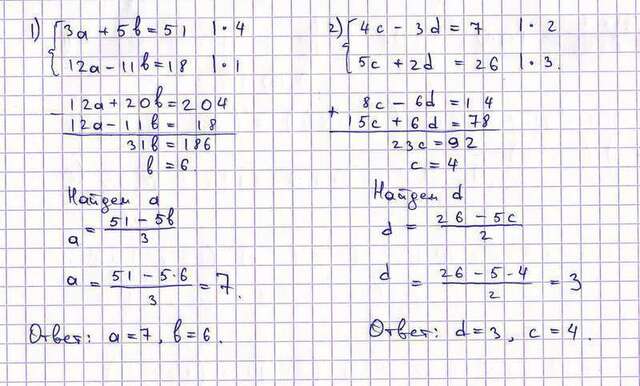 1) { 3a + 5b = 51 | · 4
12a - 11b = 18 | · 1
- 12a + 20b = 204
12a - 11b = 18
31b = 186
b = 6.
Найдем a
a = (51 - 5b)/3
a = (51 - 5·6)/3 = 7.
Ответ: a = 7, b = 6.
2) { 4c - 3d = 7 | · 2
5c + 2d = 26 | · 3.
+ 8c - 6d = 14
15c + 6d = 78
23c = 92
c = 4
Найдем d
d = (26 - 5c)/2
d = (26 - 5 - 4)/2 = 3
Ответ: d = 3, c = 4.